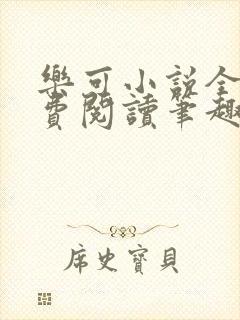 樂可小說全
費閱讀筆趣
席史寶貝